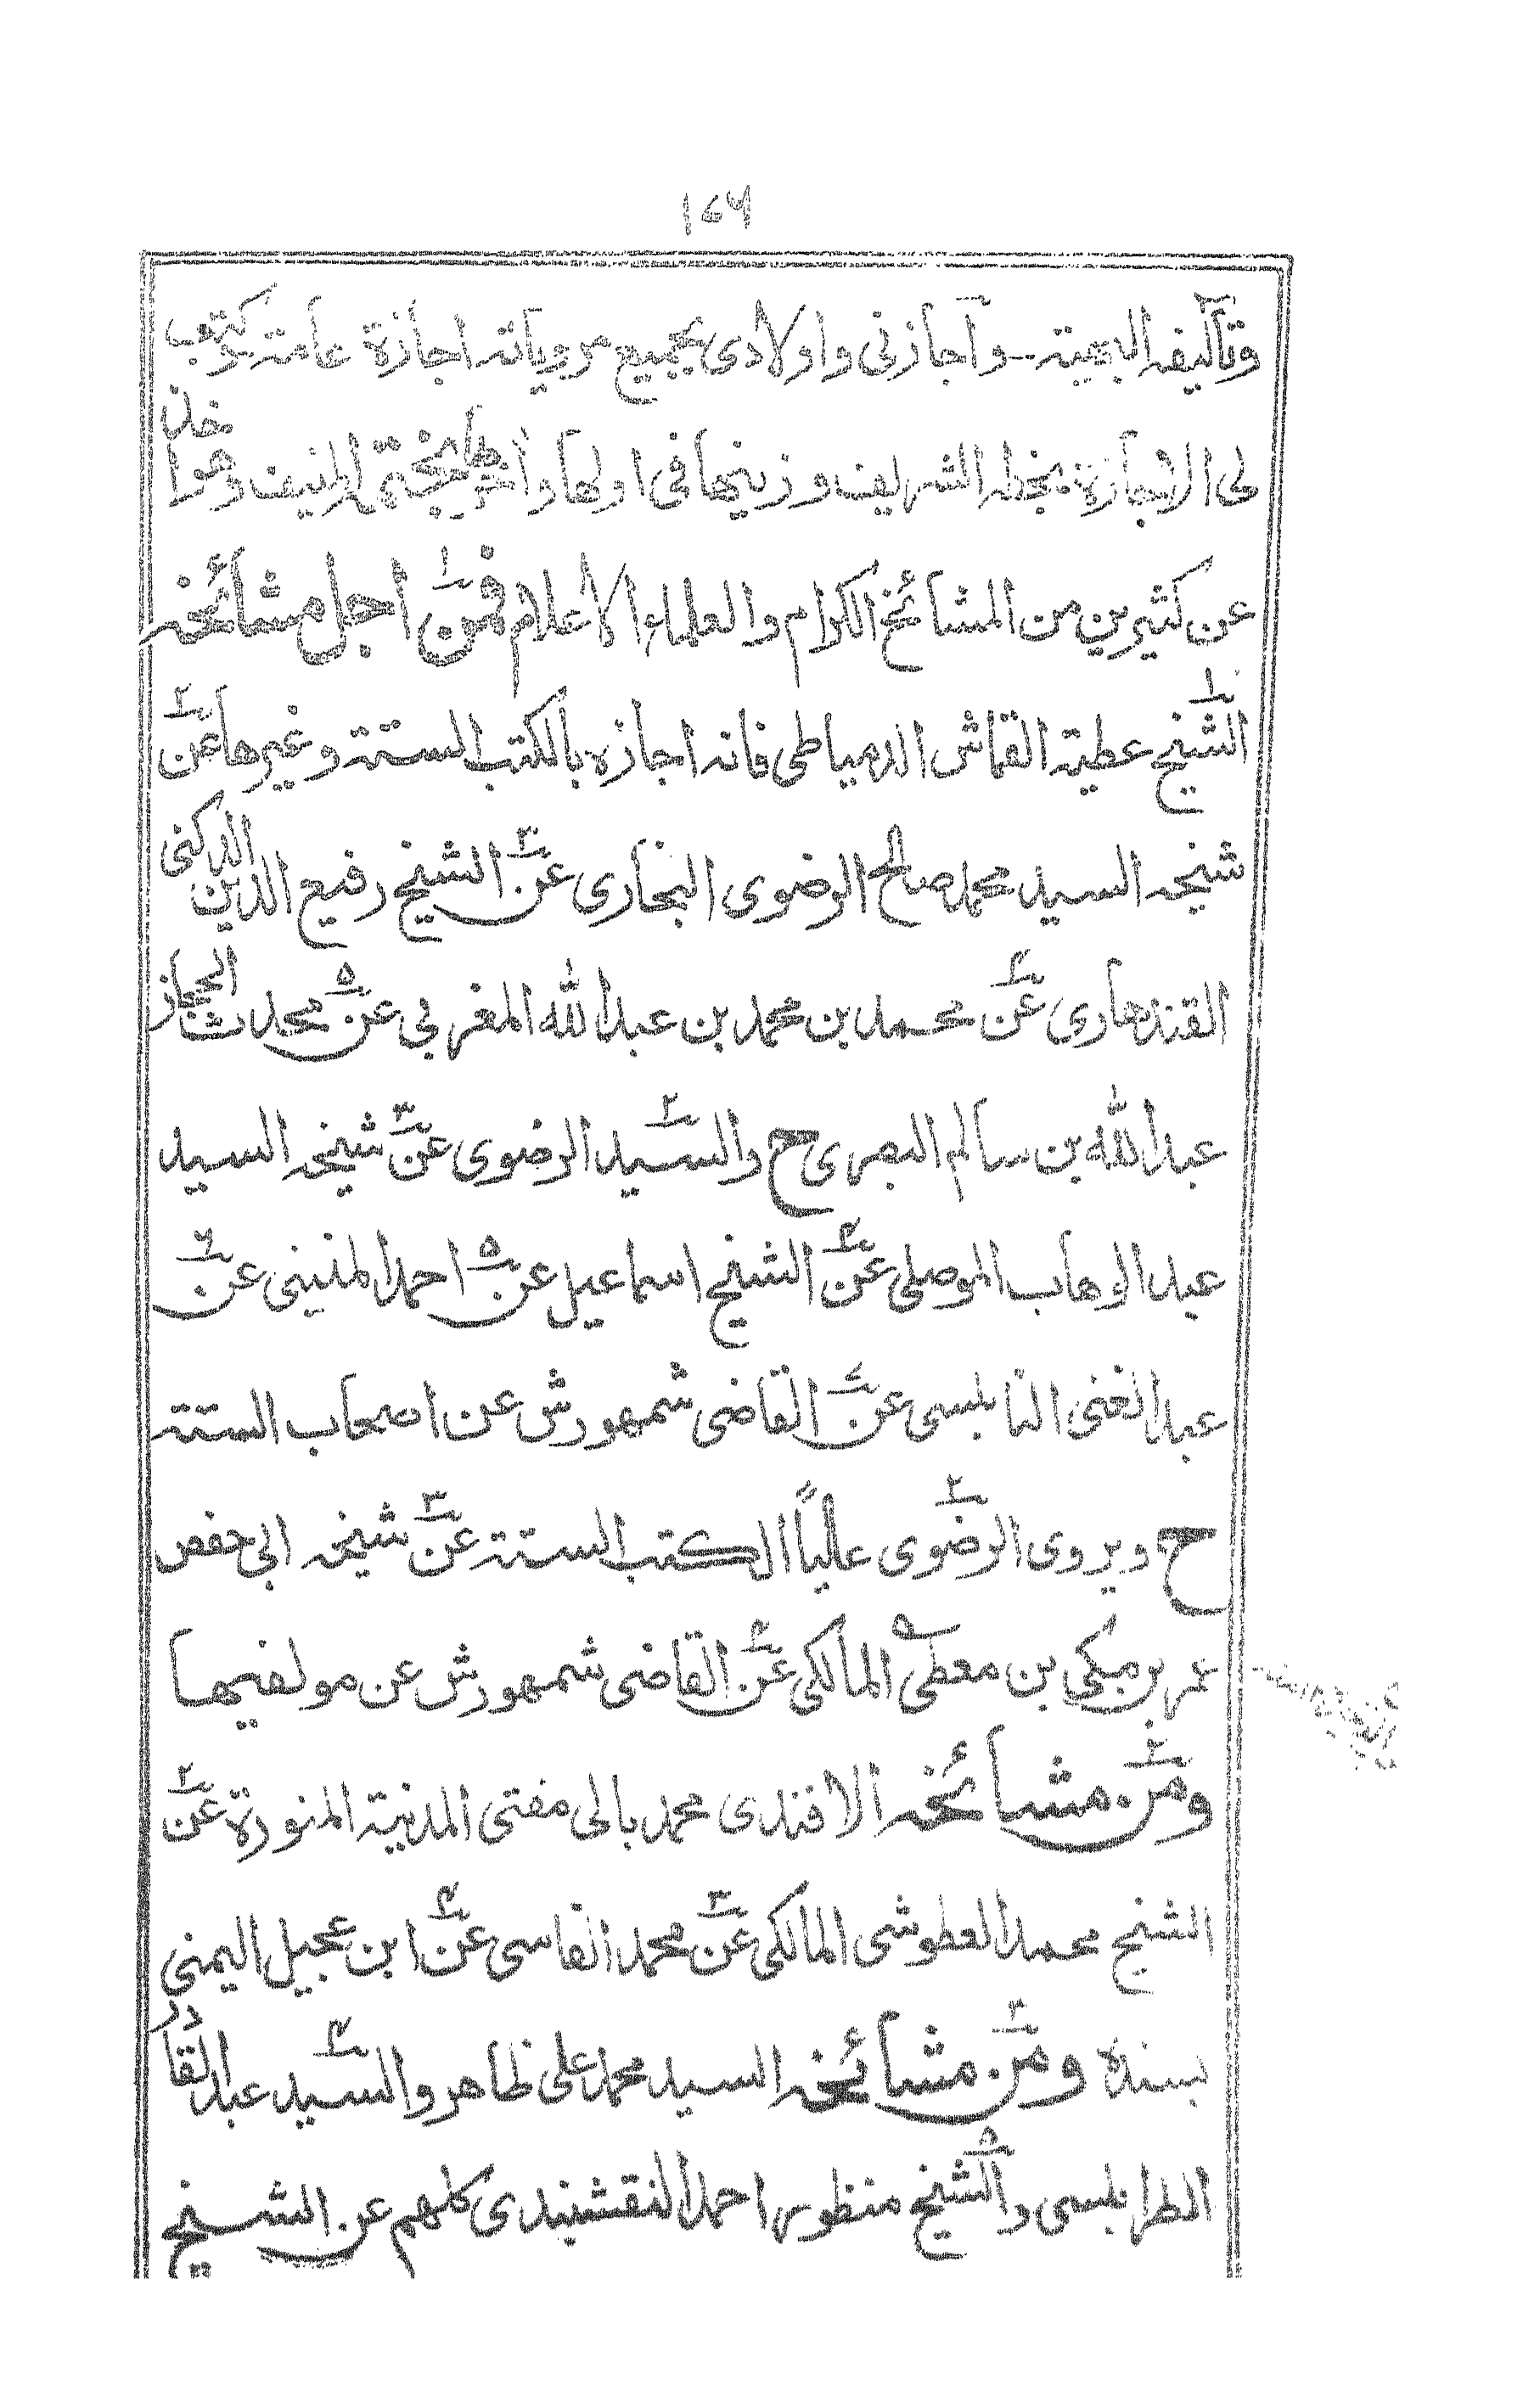 ۱۷۶
وتآليفه البهية - وآجازني واولادى بجميع مروياته اجازة عامة وكتب
لى الاجازة بخطه الشريف وزينها فى اولها وآخرها بختمه المنيف وهو اخذ
عن كثيرين من المشائخ الكرام والعلماء الاعلام فمن اجل مشائخه
الشيخ عطية القماش الدمياطى فانه اجازه بالكتب الستة وغيرها عن
شيخه السيد محمد صالح الرضوى البخارى عن الشيخ رفيع الدين الدكنى
القندهارى عن محمد بن محمد بن عبد الله المغربي عن محدث الحجاز
عبد الله بن سالم البصرى ح والسيد الرضوى عن شيخه السيد
عبد الوهاب الموصلى عن الشيخ اسماعيل عن احمد المنينى عن
عبد الغنى النابلسى عن القاضى شمهورش عن اصحاب الستة
ح ويروى الرضوى عاليًا الكتب الستة عن شيخه ابى حفص
عمر بن مكي بن معطى المالكى عن القاضى شمهورش عن مولفيها
ومن مشائخه الافندى محمد بالى مفتى المدنية المنورة عن
الشيخ محمد العطوشى المالكى عن محمد الفاسى عن ابن عجيل اليمنى
بسنده ومن مشائخه السيد محمد على ظاهر والسيد عبد القادر
الطرابلسى والشيخ منظور احمد النقشبندى كلهم عن الشيخ